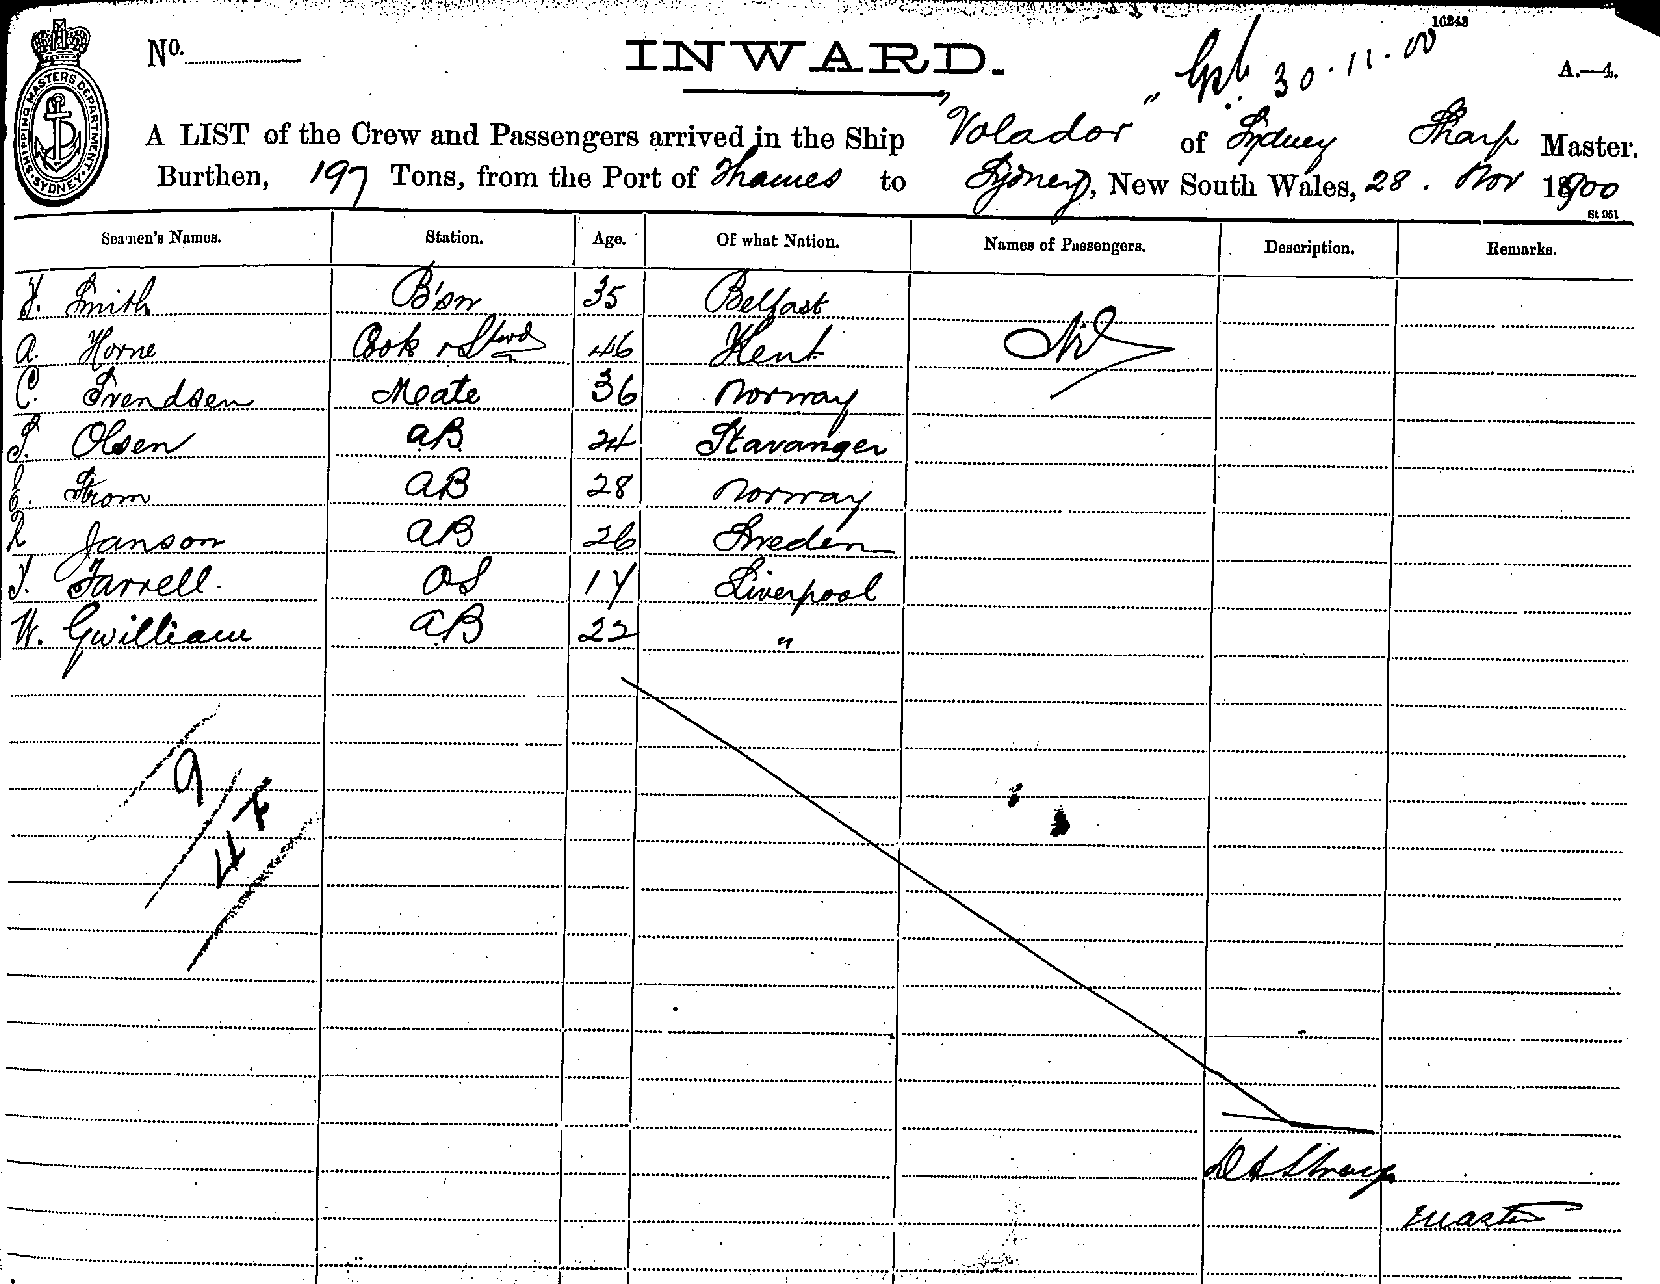 10243
No.
INWARD.
30.11.00
A.—4.
SHIPPING MASTERS DEPARTMENT. SYDNEY.
A LIST of the Crew and Passengers arrived in the Ship "Volador" of Sydney Sharp Master.
Burthen, 197 Tons, from the Port of Thames to Sydney, New South Wales, 28. Nov 1900
St 951
Seamen's Names. Station. Age. Of what Nation. Names of Passengers. Description. Remarks.
Smith B'sn 35 Belfast
A. Horne Cook & Stwd 46 Kent Nil
C. Svendsen Mate 36 Norway
Olsen AB 24 Stavanger
E. Strom AB 28 Norway
Janson AB 26 Sweden
Farrell. OS 17 Liverpool
W. Gwilliam AB 22 "
9
4 F
D A Sharp
Master